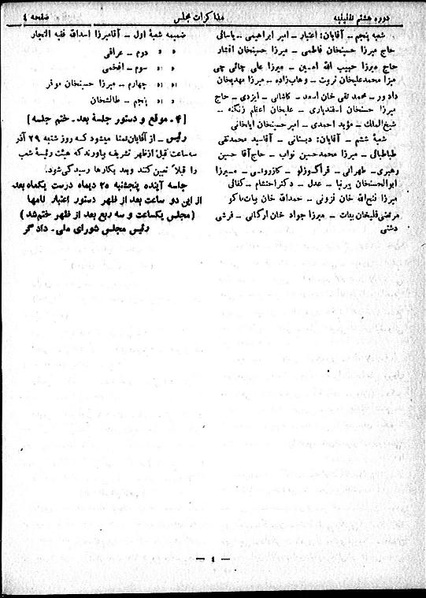 دوره هشتم تقنینیه مذاکرات مجلس صفحه ٤
شعبه پنجم ــ آقایان: اعتبار ــ امیر ابراهیمی ــ یاسائی
حاج میرزا حسینخان فاطمی ــ میرزا حسنخان افشار
حاج میرزا حبیب الله امین ــ میرزا علی چائی چی
میرزا محمدعلیخان ثروت ــ وهاب‌زاده ــ میرزا مهدیخان
داور ــ محمد تقی خان اسعد ــ کاشانی ــ ایزدی ــ حاج
میرزا حسنخان اسفندیاری ــ علیخان اعظم زنگنه ــ
شیخ‌الملک ــ مؤید احمدی ــ امیرحسینخان ایلخانی
شعبهٔ ششم ــ آقایان: دبستانی ــ آقاسید محمدتقی
طباطبائی ــ میرزا محمدحسین نواب ــ حاج‌آقا حسین
وهبری ــ طهرانی ــ قراگوزلو ــ کازرونی ــ میرزا
ابوالحسنخان پیرنیا ــ عدل ــ دکتراحتشام ــ کفائی
میرزا فتح‌الله خان فزونی ــ حمدالله خان بیات‌ماکو
مرتضی قلیخان بیات ــ میرزا جواد خان اریکانی ــ فرشی
دشتی
ضمیمه شعبهٔ اول ــ آقامیرزا اسدالله فقیه التجار
» » دوم ــ عراقی
» » سوم ــ افخمی
» » چهارم ــ میرزا حسینخان موقر
» » پنجم ــ طالشخان
[٤ ــ موقع و دستور جلسهٔ بعد ــ ختم جلسه]
رئیس ــ از آقایان تمنا میشود که روز شنبه ٢٩ آذر
سه‌ساعت قبل ازظهر تشریف بیاورند که هیئت رئیسهٔ شعب
را قبلاً تعیین کنند وبعد بکارها رسیدگی شود.
جلسه آینده پنجشنبه ٢٥ دیماه درست یکماه بعد
از این دو ساعت بعد از ظهر دستور اعتبار نامها
(مجلس یکساعت و سه ربع بعد از ظهر ختم‌شد)
رئیس مجلس شورای ملی ــ دادگر
— ٤ —